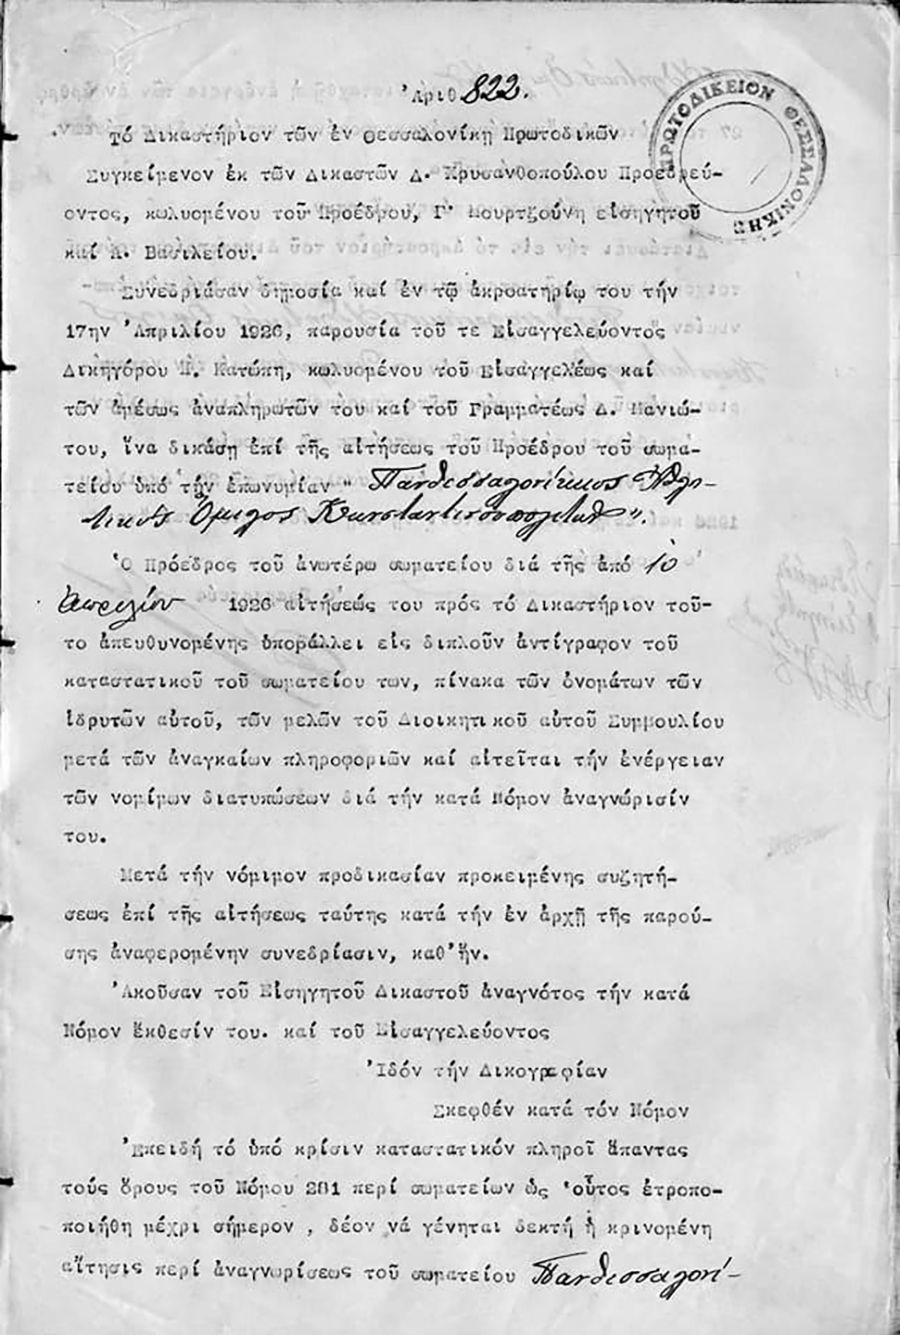 Ἀριθ. 822.
ΠΡΩΤΟΔΙΚΕΙΟΝ ΘΕΣΣΑΛΟΝΙΚΗΣ
Τό Δικαστήριον τῶν ἐν Θεσσαλονίκῃ Πρωτοδικῶν
Συγκείμενον ἐκ τῶν Δικαστῶν Δ. Χρυσανθοπούλου Προεδρεύ-
οντος, κωλυομένου τοῦ Προέδρου, Γ. Μουρτζούνη εἰσηγητοῦ
καί Α. Βασιλείου.
Συνεδριάσαν δημοσίᾳ καί ἐν τῷ ἀκροατηρίῳ του τήν
17ην Ἀπριλίου 1926, παρουσίᾳ τοῦ τε Εἰσαγγελεύοντος
Δικηγόρου Π. Κατώπη, κωλυομένου τοῦ Εἰσαγγελέως καί
τῶν ἀμέσως ἀναπληρωτῶν του καί τοῦ Γραμματέως Δ. Μανιώ-
του, ἵνα δικάσῃ ἐπί τῆς αἰτήσεως τοῦ Προέδρου τοῦ σωμα-
τείου ὑπό τήν ἐπωνυμίαν " Πανθεσσαλονίκειος Ἀθλη-
τικός Ὅμιλος Κωνσταντινουπολιτῶν".
Ὁ Πρόεδρος τοῦ ἀνωτέρω σωματείου διά τῆς ἀπό 10
Ἀπριλίου 1926 αἰτήσεώς του πρός τό Δικαστήριον τοῦ-
το ἀπευθυνομένης ὑποβάλλει εἰς διπλοῦν ἀντίγραφον τοῦ
καταστατικοῦ τοῦ σωματείου των, πίνακα τῶν ὀνομάτων τῶν
ἱδρυτῶν αὐτοῦ, τῶν μελῶν τοῦ Διοικητικοῦ αὐτοῦ Συμβουλίου
μετά τῶν ἀναγκαίων πληροφοριῶν καί αἰτεῖται τήν ἐνέργειαν
τῶν νομίμων διατυπώσεων διά τήν κατά Νόμον ἀναγνώρισίν
του.
Μετά τήν νόμιμον προδικασίαν προκειμένης συζητή-
σεως ἐπί τῆς αἰτήσεως ταύτης κατά τήν ἐν ἀρχῇ τῆς παρού-
σης ἀναφερομένην συνεδρίασιν, καθ'ἥν.
Ἀκοῦσαν τοῦ Εἰσηγητοῦ Δικαστοῦ ἀναγνότος τήν κατά
Νόμον ἔκθεσίν του. καί τοῦ Εἰσαγγελεύοντος
Ἰδόν τήν Δικογραφίαν
Σκεφθέν κατά τόν Νόμον
Ἐπειδή τό ὑπό κρίσιν καταστατικόν πληροῖ ἅπαντας
τούς ὅρους τοῦ Νόμου 281 περί σωματείων ὡς 'οὗτος ἐτροπο-
ποιήθη μέχρι σήμερον , δέον νά γένηται δεκτή ἡ κρινομένη
αἴτησις περί ἀναγνωρίσεως τοῦ σωματείου Πανθεσσαλονί-